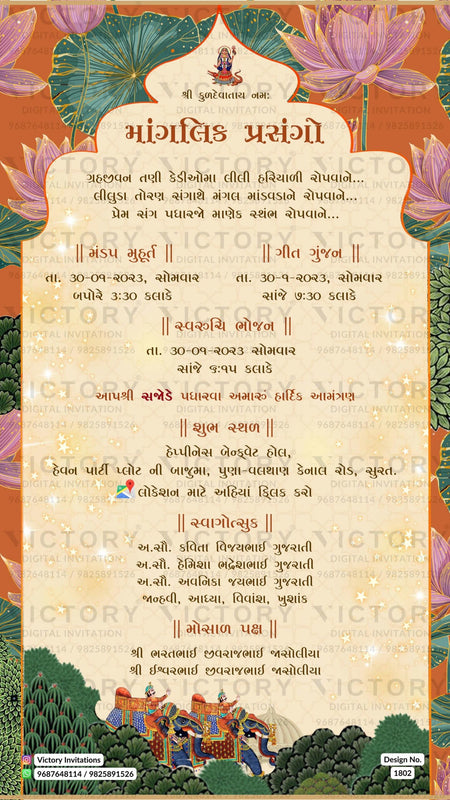 શ્રી કુળદેવાતાય નમ:
માંગલિક પ્રસંગો
ગ્રહજીવન તણી કેડીઓમા લીલી હરિયાળી રોપવાને...
લીલુડા તોરણ સંગાથે મંગલ માંડવડાને રોપવાને...
પ્રેમ સંગ પધારજો માણેક સ્થંભ રોપવાને...
|| મંડપ મુહૂર્ત ||
તા. ૩૦-૦૧-૨૦૨૩, સોમવાર
બપોરે ૩:૩૦ કલાકે
|| ગીત ગુંજન ||
તા. ૩૦-૧-૨૦૨૩, સોમવાર
સાંજે ૭:૩૦ કલાકે
|| સ્વરુચિ ભોજન ||
તા. ૩૦-૦૧-૨૦૨૩ સોમવાર
સાંજે ૬:૧૫ કલાકે
આપશ્રી સજોડે પધારવા અમારું હાર્દિક આમંત્રણ
|| શુભ સ્થળ ||
હેપ્પીનેસ બેન્કવેટ હોલ,
હેવન પાર્ટી પ્લોટ ની બાજુમા, પુણા-વલથાણ કેનાલ રોડ, સુરત.
લોકેશન માટે અહિયાં ક્લિક કરો
|| સ્વાગોત્સુક ||
અ.સૌ. કવિતા વિજયભાઈ ગુજરાતી
અ.સૌ. હેમિશા ભદ્રેશભાઈ ગુજરાતી
અ.સૌ. અવનિકા જયભાઈ ગુજરાતી
જાન્હવી, આધ્યા, વિવાંશ, ખુશાંક
|| મોસાળ પક્ષ ||
શ્રી ભરતભાઈ જીવરાજભાઈ જાસોલીયા
શ્રી ઈશ્વરભાઈ જીવરાજભાઈ જાસોલીયા
Victory Invitations
9687648114 / 9825891526
Design No.
1802
VICTORY
DIGITAL INVITATION
9687648114 / 9825891526